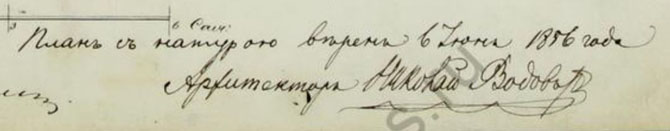 6 Саж:
Планъ съ натурою вѣренъ 6 Іюня 1856 года
Архитекторъ Николай